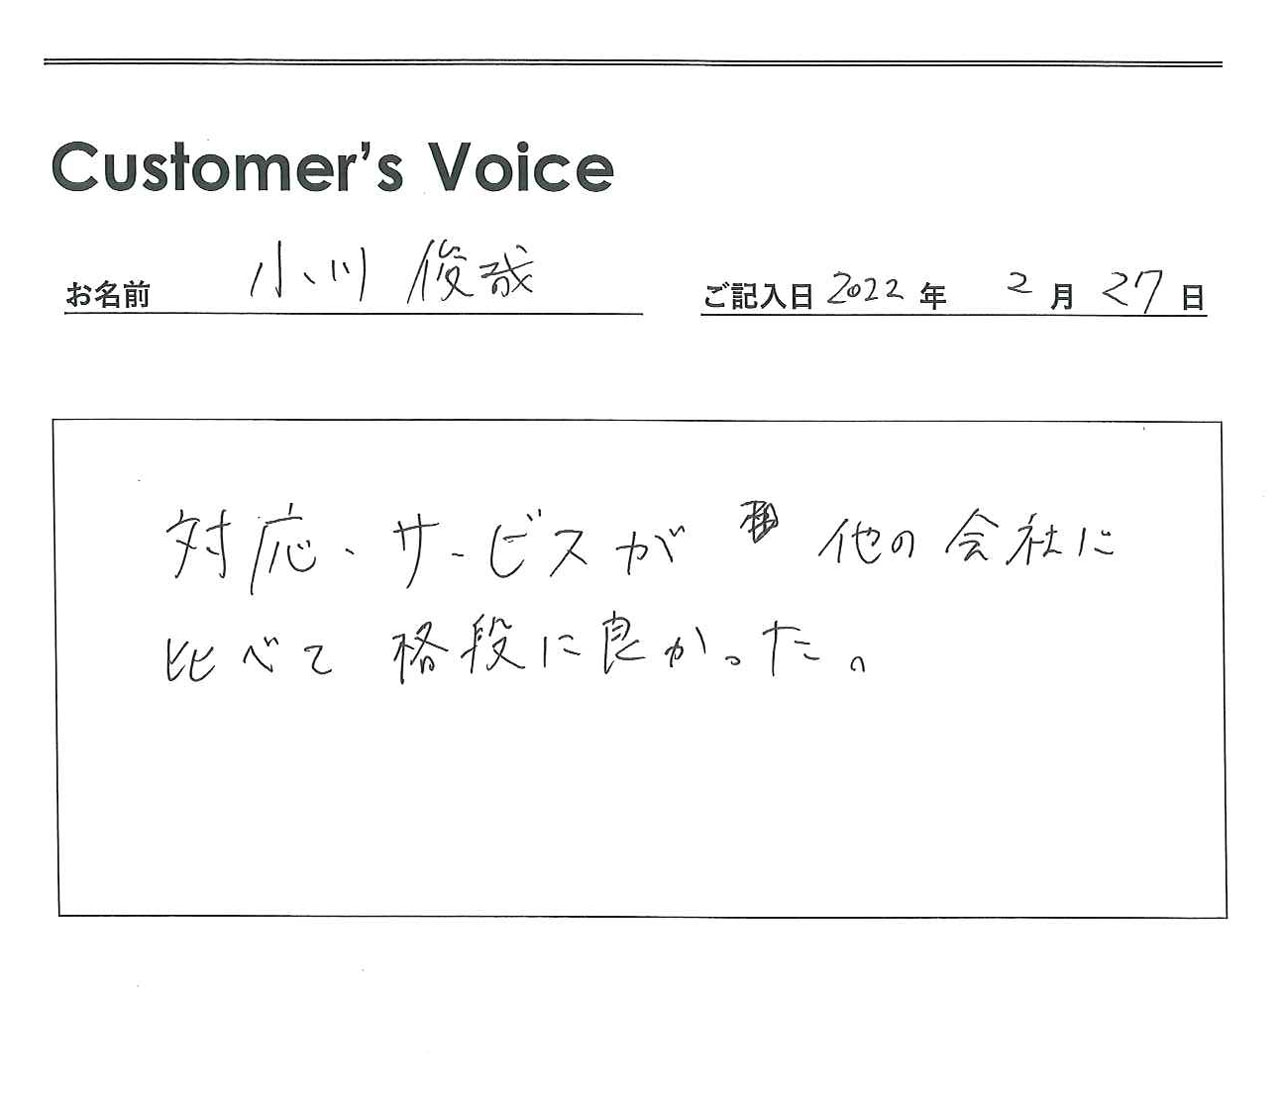 Customer's Voice
お名前 小川 俊哉 ご記入日 2022 年 2 月 27 日
対応、サービスが 他の会社に
比べて 格段に良かった。